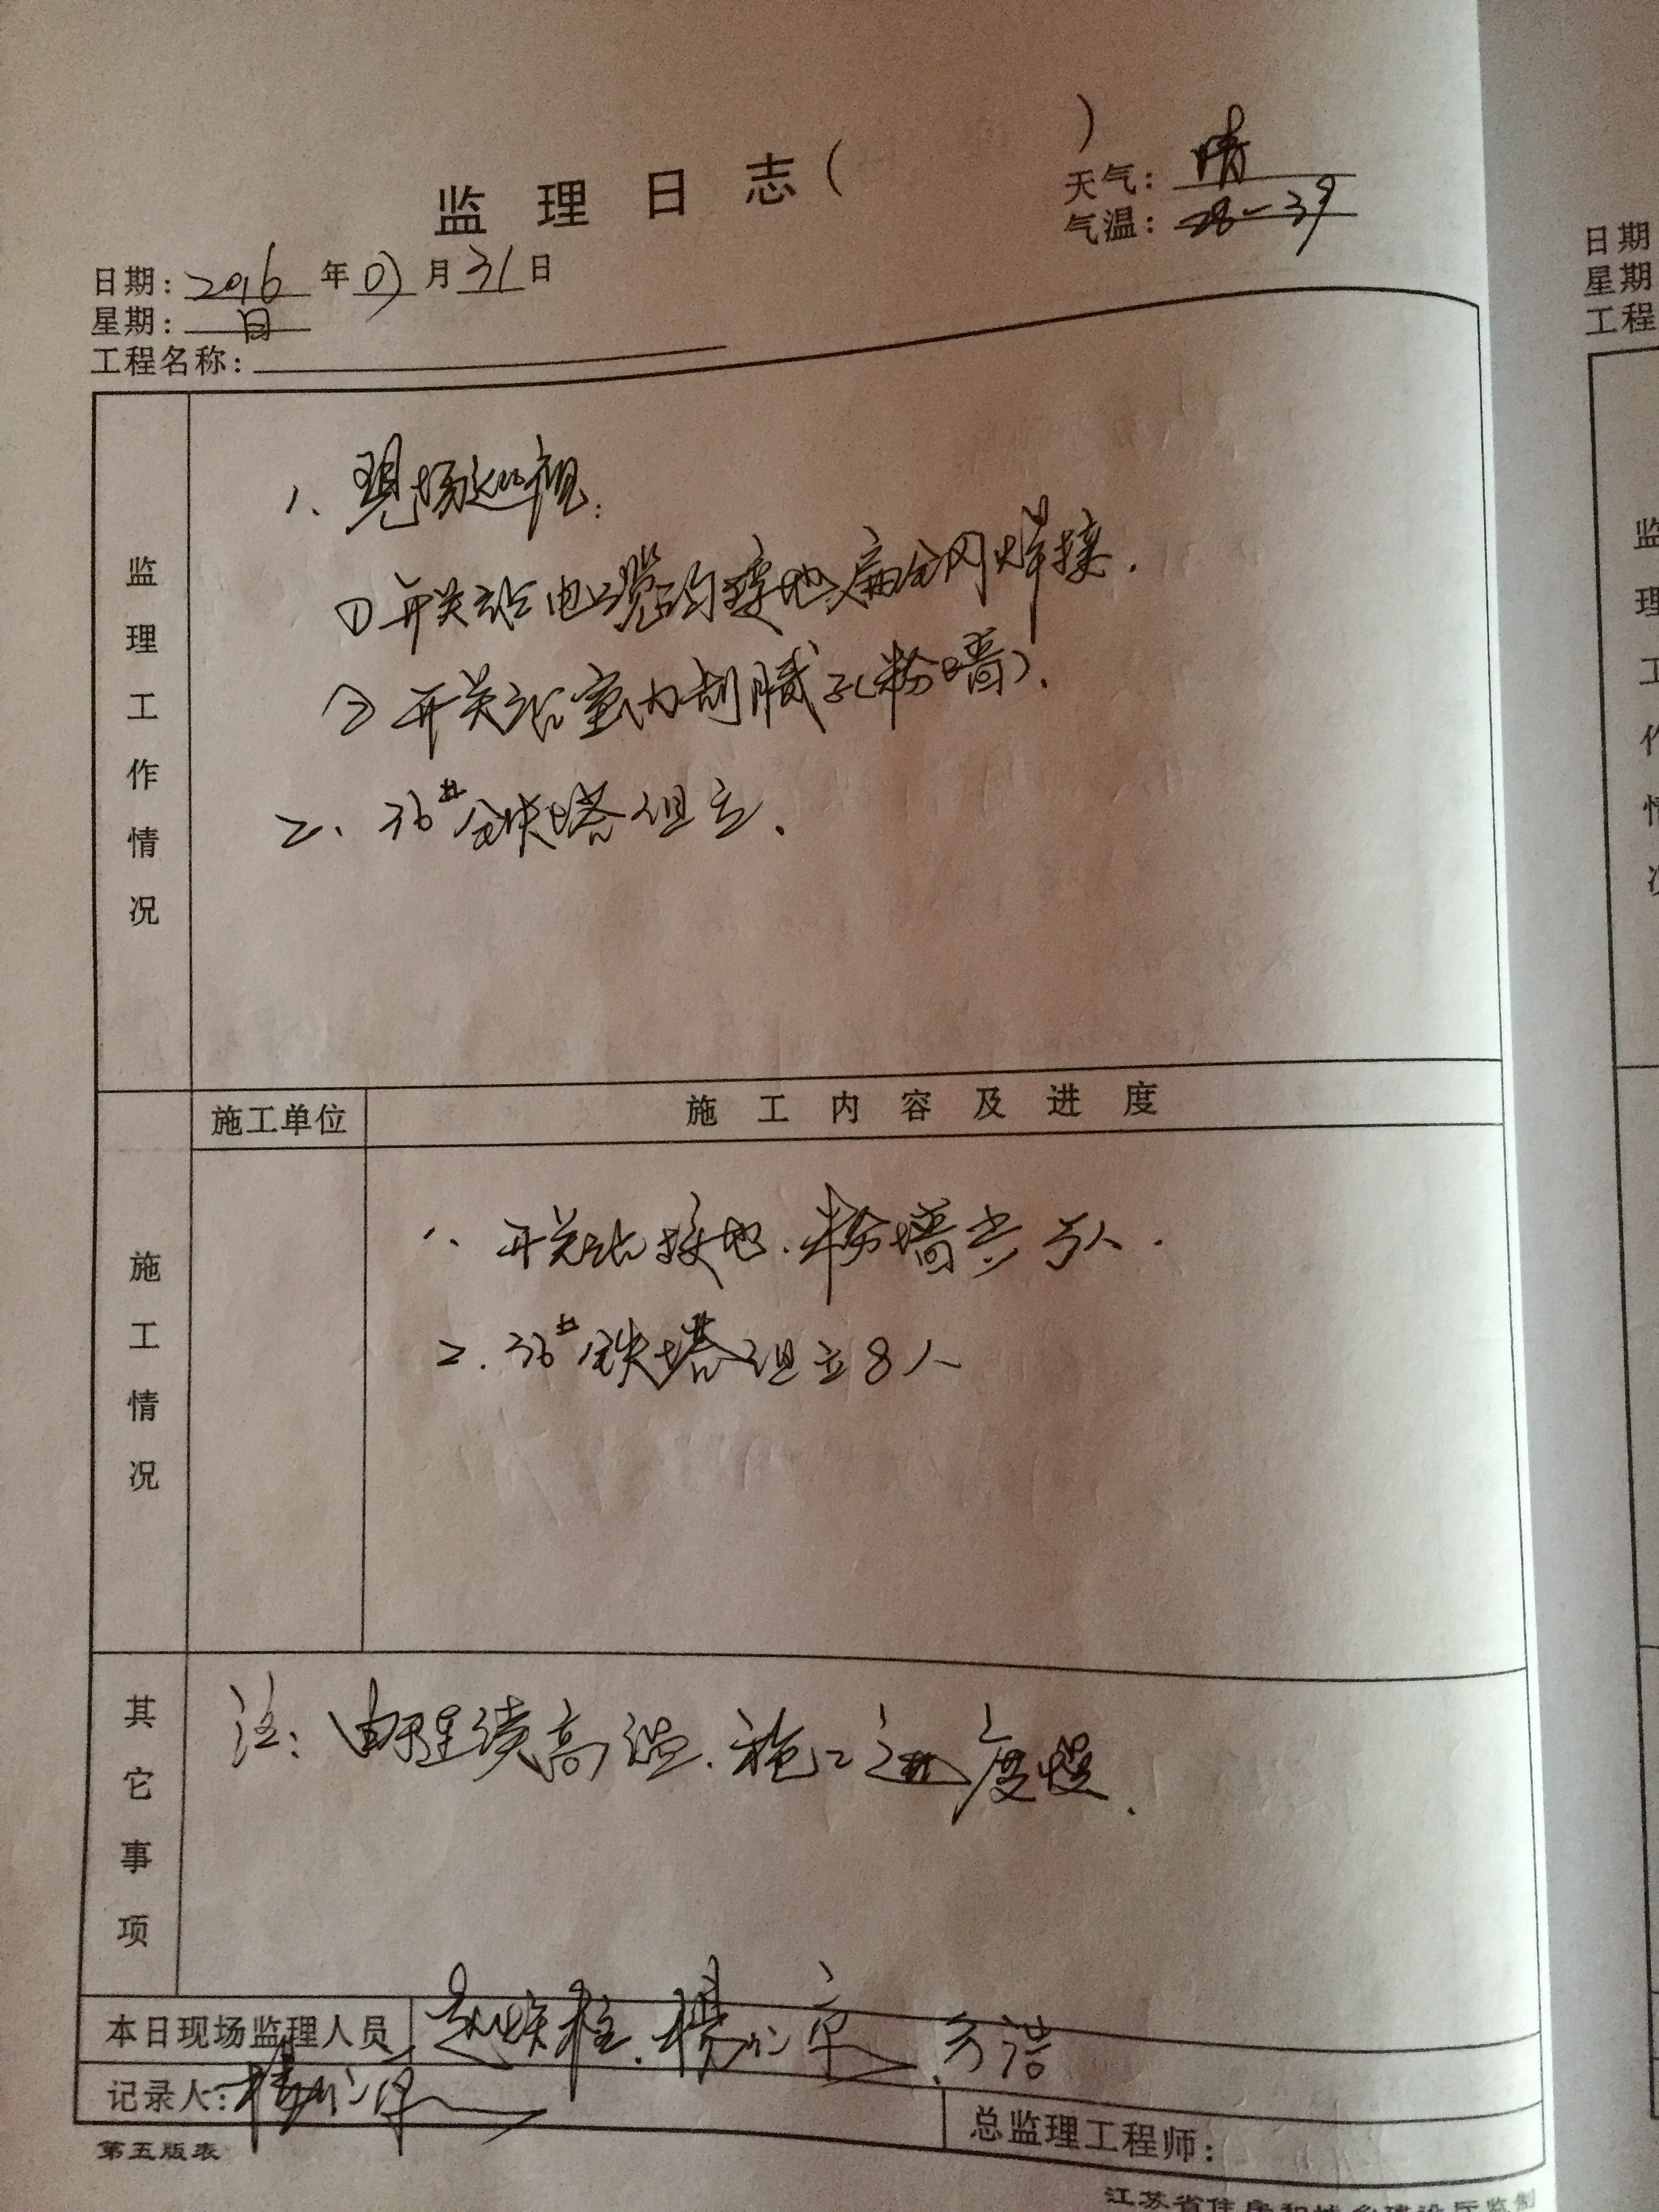 监理日志( )
天气: 晴
气温: 28-39
日期: 2016年07月31日
星期: 日
工程名称:
监理工作情况
1、现场巡视:
①开关站电缆沟接地扁钢焊接.
②开关站室内刮腻子(粉墙).
2、36#铁塔组立.
施工情况
施工单位
施工内容及进度
1、开关站接地.粉墙共5人.
2.36#铁塔组立8人
其它事项
注:由于连续高温.施工进度慢.
本日现场监理人员
方浩
记录人:
总监理工程师:
第五版表
江苏省住房和城乡建设厅监制
日期
星期
工程
监理工作情况